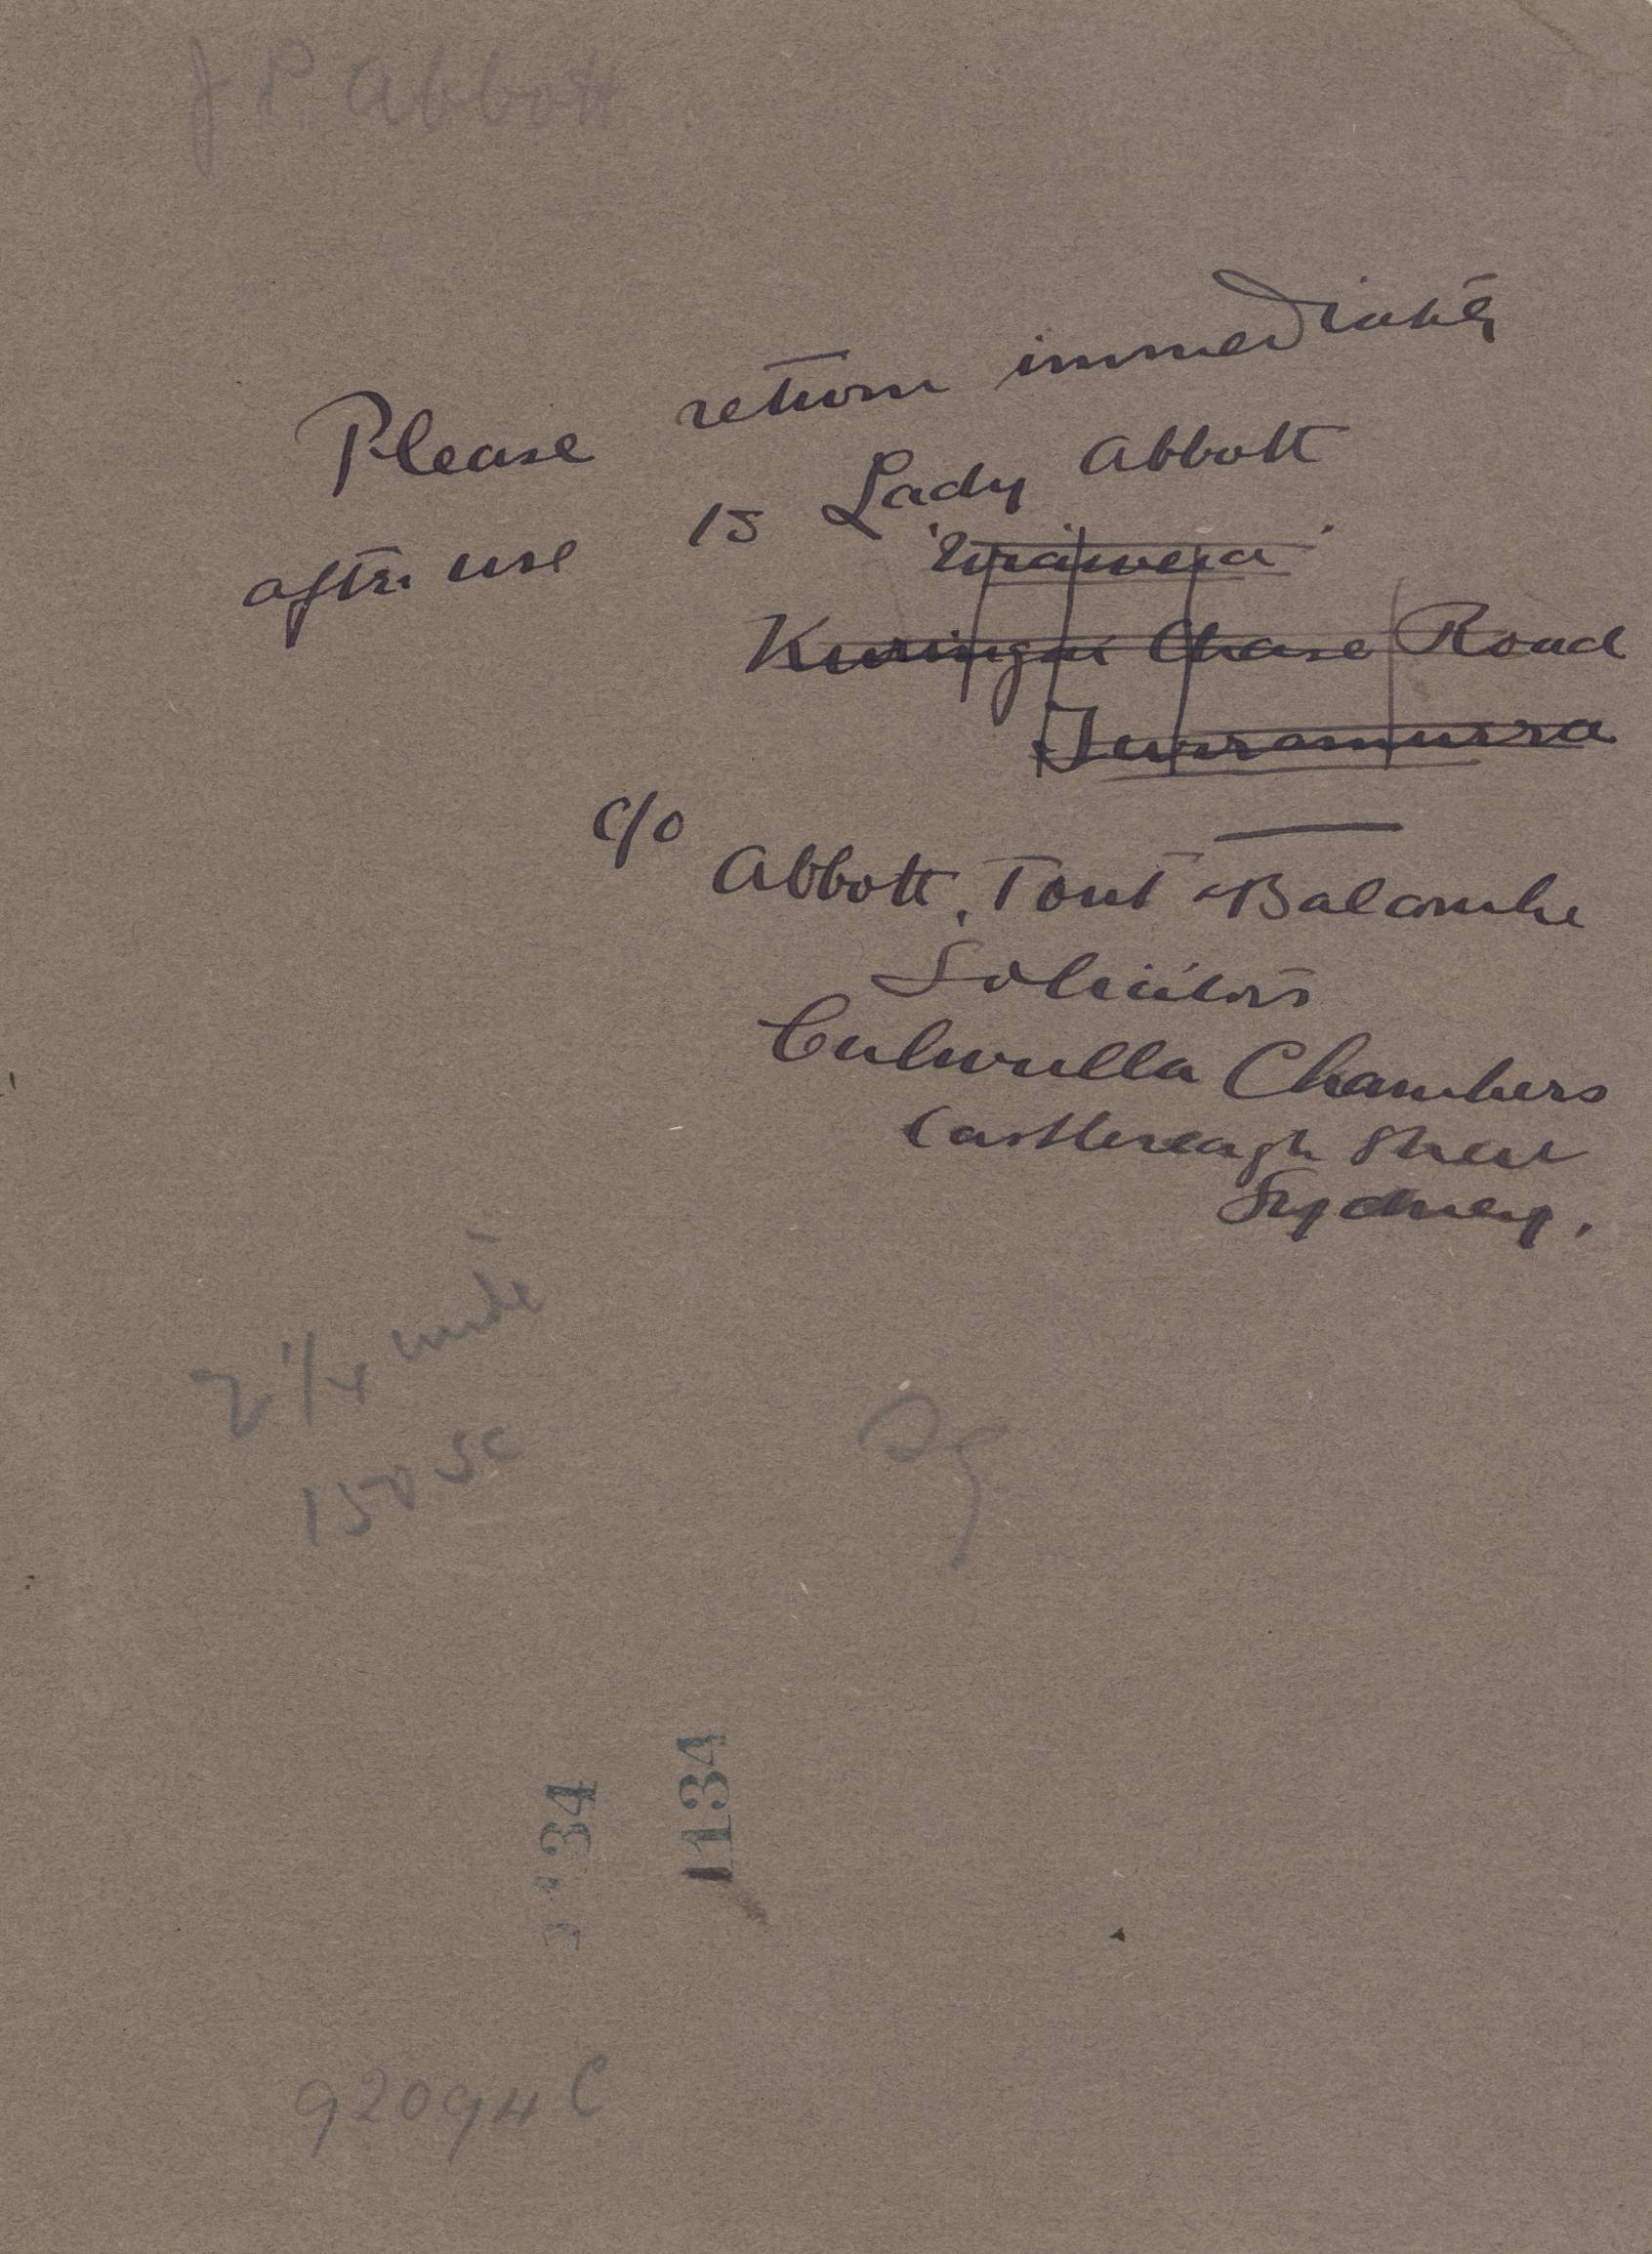 J P Abbott
Please return immediately
after use to Lady Abbott
Kuringai Chase Road
Turramurra
c/o
Abbott, Tout & Balcombe
Solicitors
Culwulla Chambers
Castlereagh Street
Sydney.
2 1/4 wide
150 Sc
34
1134
92094 C